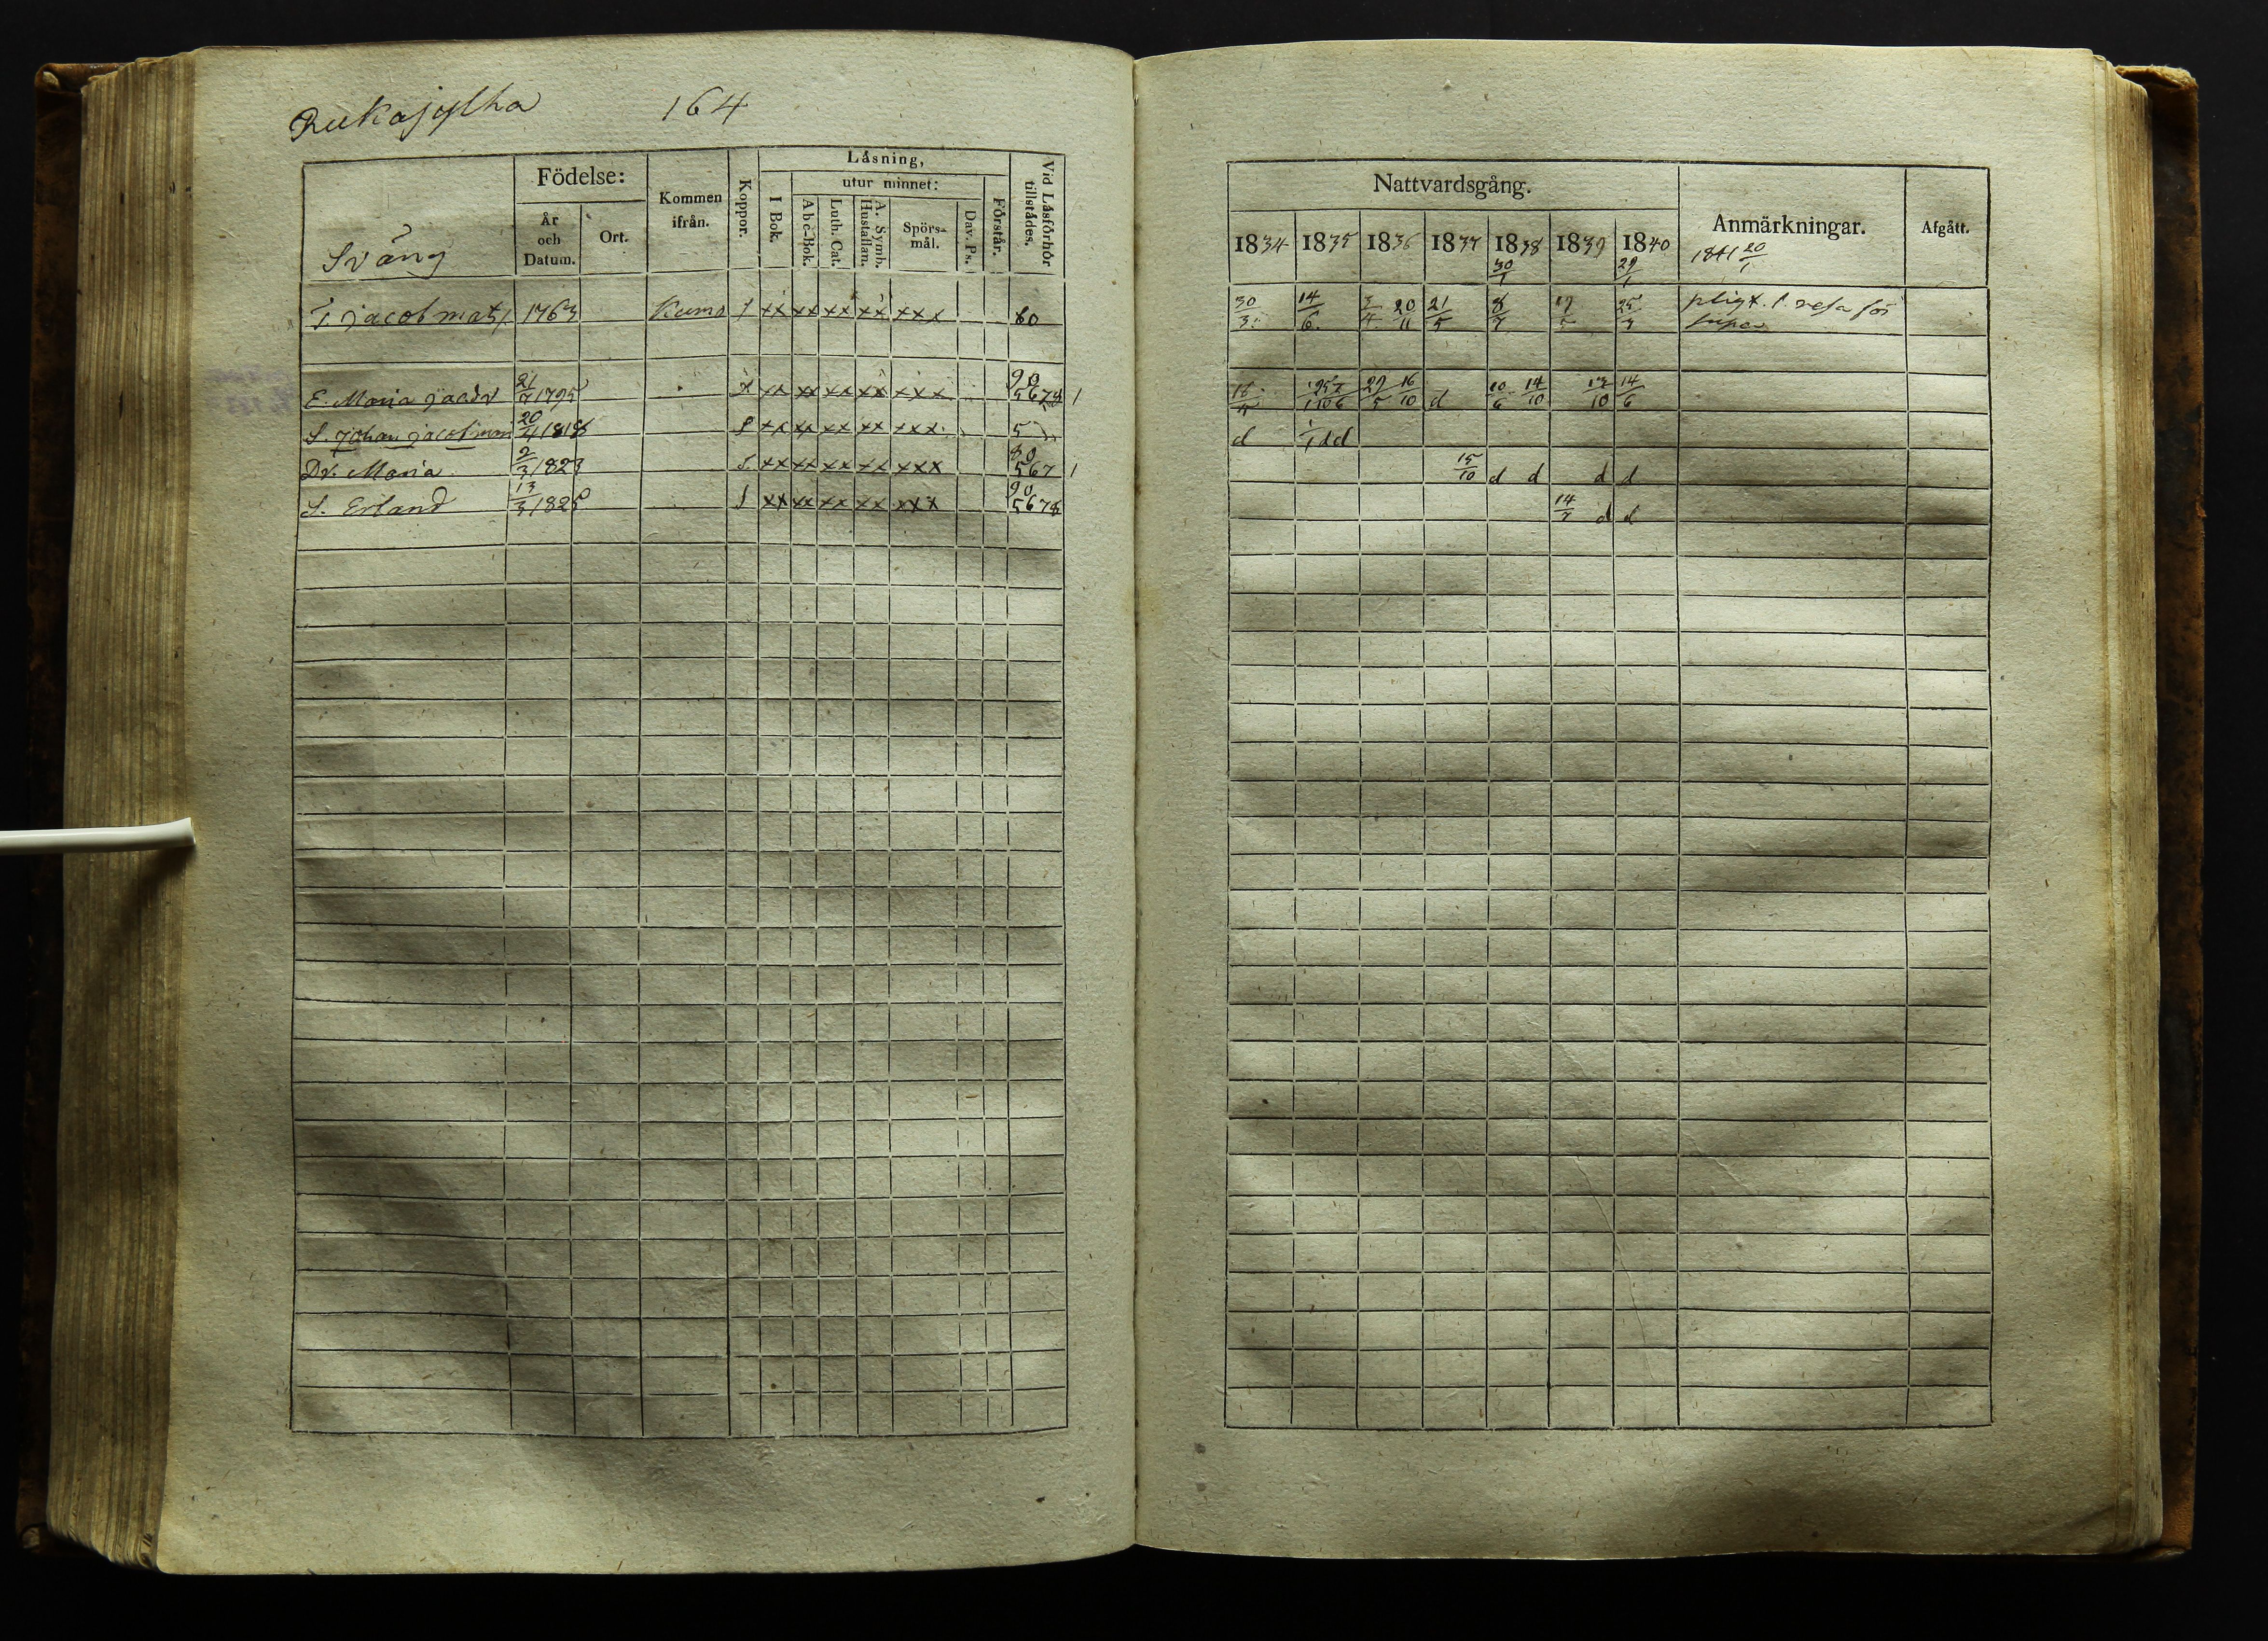 Rukajylha 164
Födelse: Kommen ifrån. Koppor. Läsning, utur minnet: Vid Läsförhör tillstädes.
År och Datum. Ort. I Bok. Abc-Bok. Luth. Cat. A. Symb. Hustaflan. Spörsmål. Dav. Ps. Förstår.
Sväng
T. Jacob mats. 1763 Kumo / xx xx xx xx xxx 60
E. Maria Jacobs 21/7 1795 xx xx xx xx xxx 90 5678 1
S. Johan Jacobsson 20/4 1818 xx xx xx xx xxx 5
Dr. Maria 2/3 1823 S. xx xx xx xx xxx 80 567 1
S. Erland 13/3 1825 xx xx xx xx xxx 90 5678
Nattvardsgång. Anmärkningar. Afgått.
1834 1835 1836 1837 1838 1839 1840 1841 20/1
30/1 29/1
30/3 14/6 3/4 20/11 21/5 8/7 25/3 pligt. 1. resa för
29/5 16/10 d 10/6 14/10 13/10 14/6
d 1/1 d d
15/10 d d d d
14/7 d d